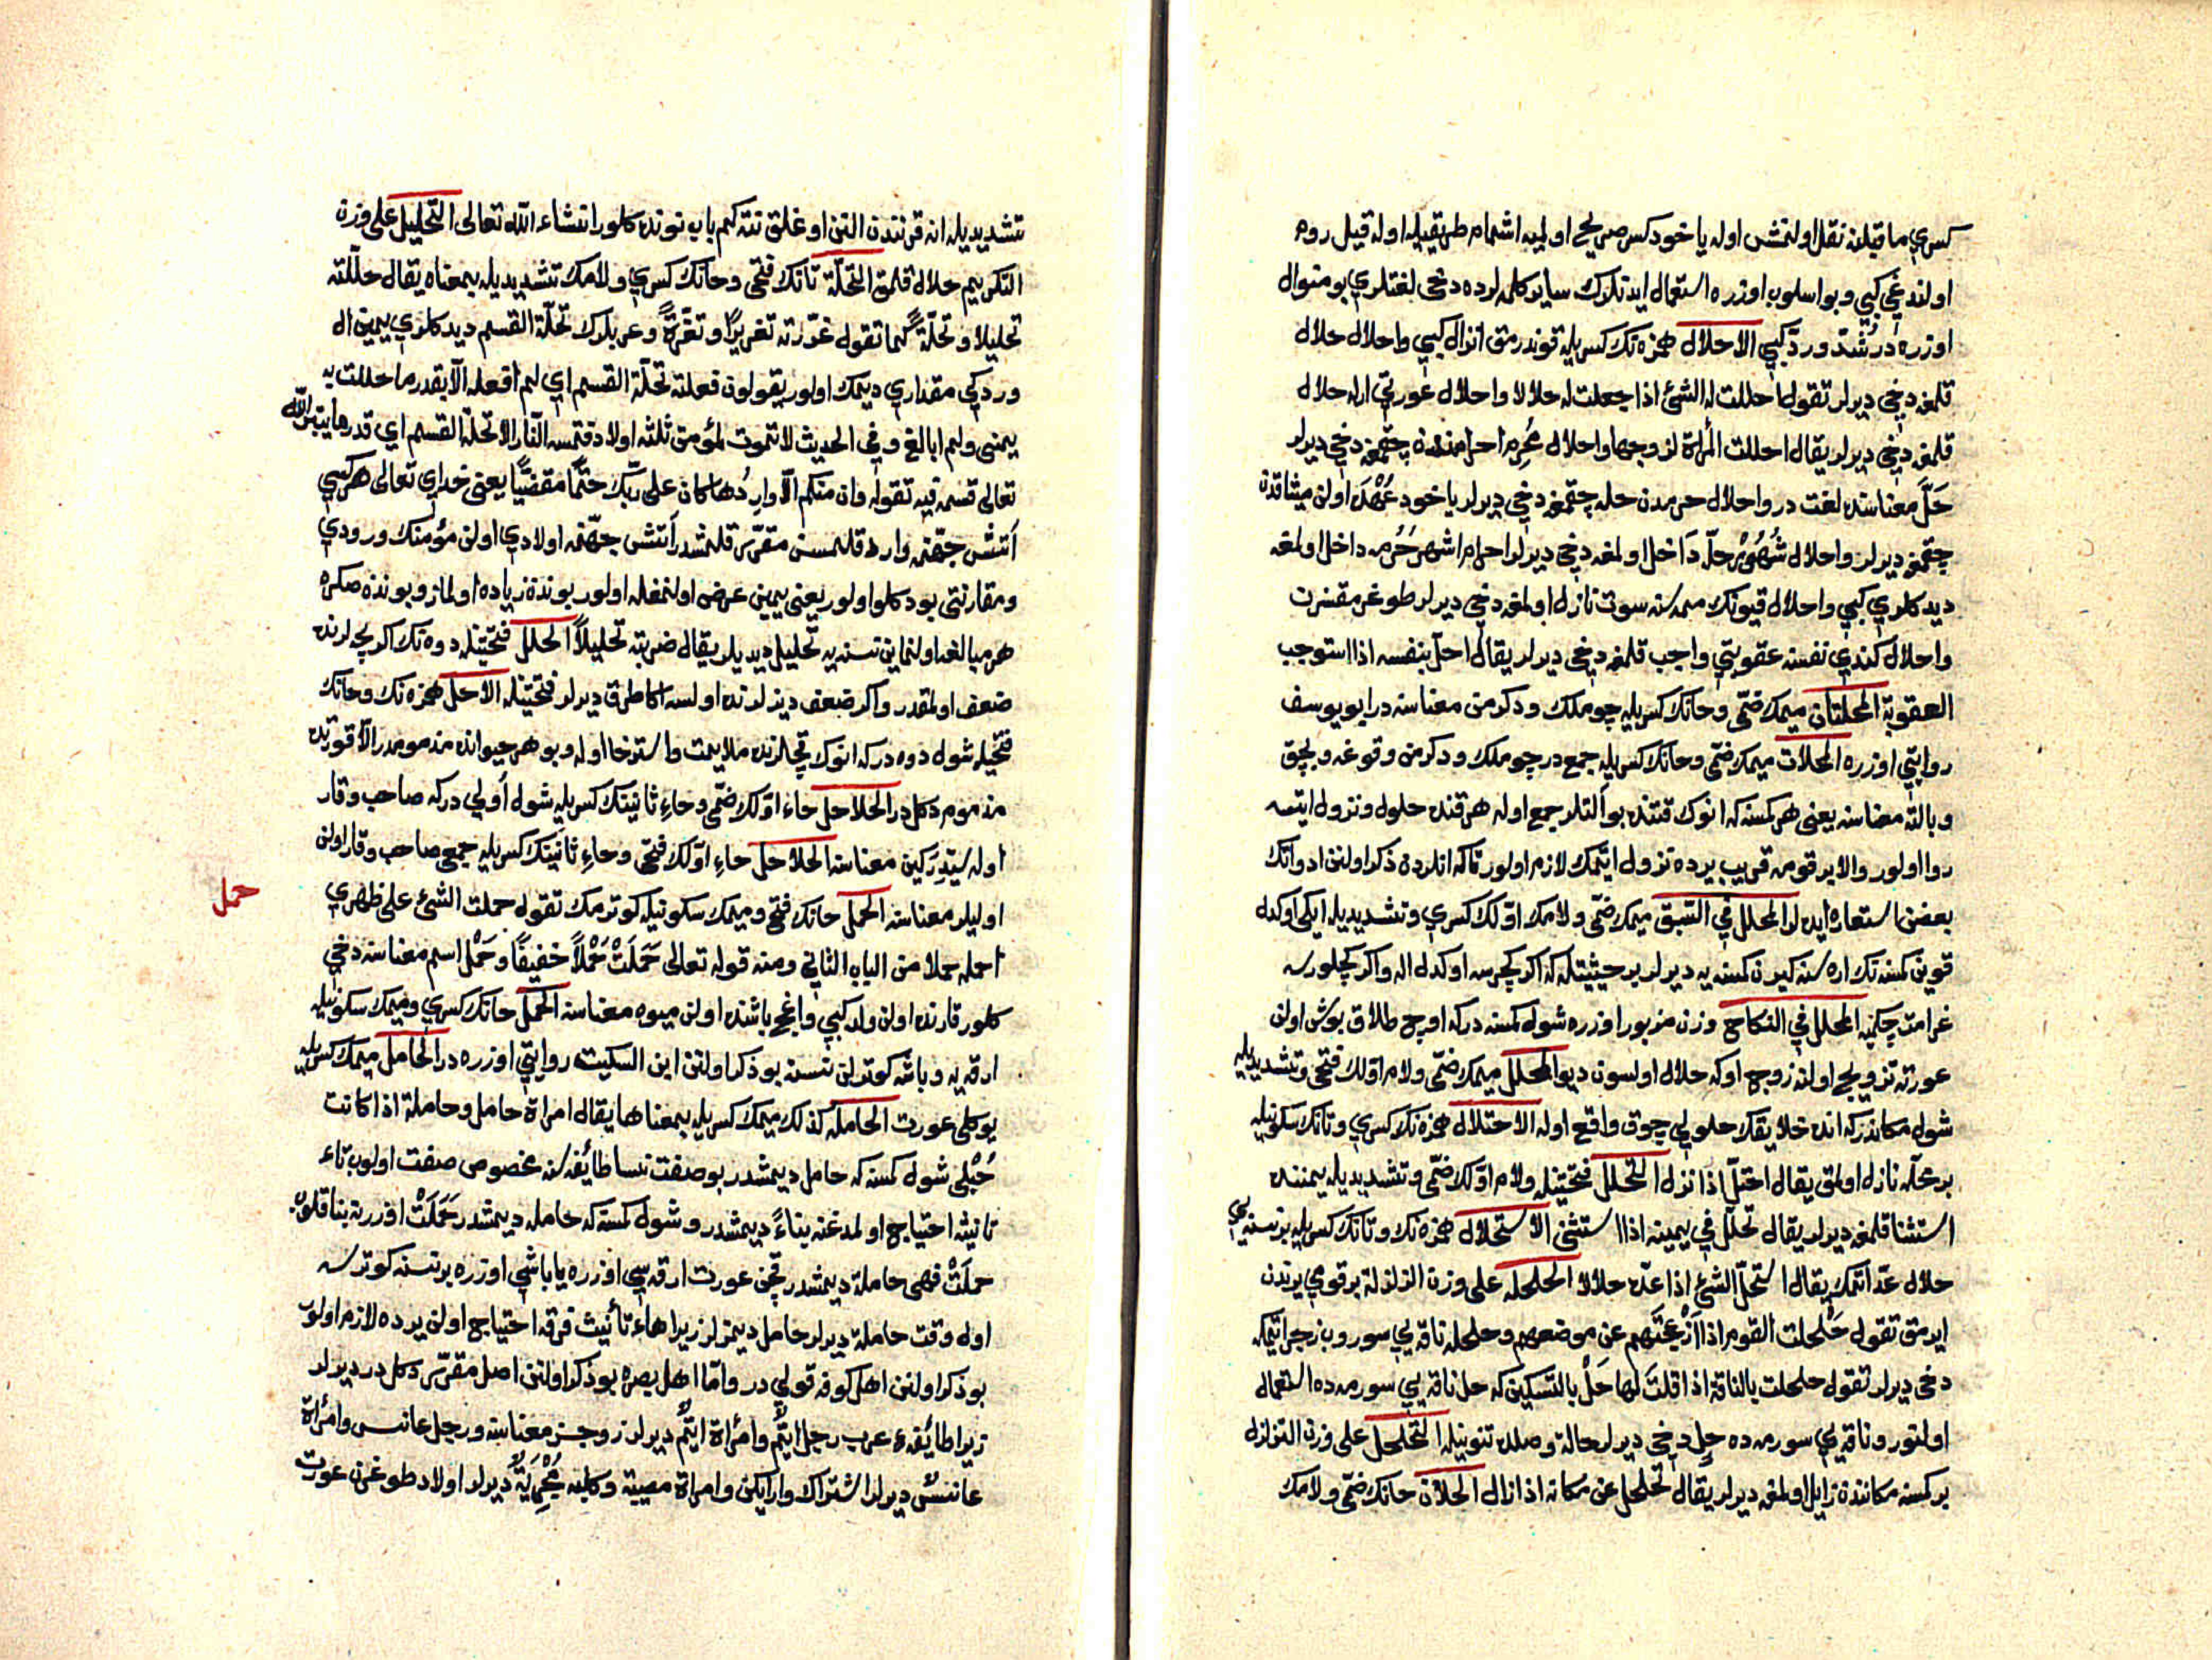 كسري ما قبلنه نقل اولنمش اوله ياخود كس صريح اوليه اشمام طريقيله اوله قيل روم
اولندغي كبي و بو اسلوب اوزره استعمال ايتدكلرك ساير كلمه لرده دخى لغتلري بو منوال
اوزره در شُدّ و ردّ كبي الاحلال همزه نك كسريله قوندرمق انزال كبي واحلال حلال
قلمغه دخي ديرلر تقول احللت له الشئ اذا جعلت له حلالا واحلال عورتي اره حلال
قلمغه دخي ديرلر يقال احللت المرأة لزوجها واحلال مُحرِم احرامندن چقمغه دخي ديرلر
حَلَّ معناسنه لغت در واحلال حرمدن حله چقمغه دخي ديرلر ياخود عُهْدَ اولن ميثاقدن
چقمغه ديرلر واحلال شُهُوْرِ حلّه دَاخل اولمغه دخي ديرلر احرام اشهر حُرُمه داخل اولمغه
ديدكلري كبي واحلال قيونك ممه سنه سوت نازل اولمغه دخي ديرلر طوغرمقسزن
واحلال كندي نفسنه عقوبتي واجب قلمغه دخي ديرلر يقال احلّ بنفسه اذا استوجب
العقوبة المحلتان ميمك ضمّى وحانك كسريله چوملك ودكرمن معناسنه در ابو يوسف
روايتي اوزره المحلات ميمك ضمّى وحانك كسريله جمع در چوملك ودكرمن وقوغه وبچق
وبالته معناسنه يعنى هر كمسنه كه انوك قتنده بو التلر جمع اوله هر قنده حلول ونزول ايتسه
روا اولور والا بر قومه قريب يرده نزول ايتمك لازم اولور تاكه انلردن ذكر اولنن ادواتك
بعضن استعاره ايده لر المحلل في السّبق ميمك ضمّى ولامك اوّلك كسري وتشديديله ايكي اوكدل
قوين كمسنه نك اره سنه كيرن كمسنه يه ديرلر بر حيثيتله كه اكر كچرسه اوكدل اله واكر كچلورسه
غرامت چكميه المحلل في النكاح وزن مزبور اوزره شول كمسنه دركه اوچ طلاق بوش اولن
عورته تزويج اولنه زوج اوله حلال اولسون ديو المحلل ميمك ضمّى ولام اوّلك فتحى وتشديديله
شول مكاندركه انده خلايقك حلولي چوق واقع اوله الاحتلال همزه نك كسري وتانك سكونيله
بر محلّه نازل اولمق يقال احتلّ اذا نزل التحلل فتحتينله ولام اوّلك ضمّى وتشديديله يمينده
استثنا قلمغه ديرلر يقال تحلّل في يمينه اذا استثنى الاستحلال همزه نك وتانك كسريله بر نسنه يي
حلال عدّ اتمك يقال استحلّ الشئ اذا عدّه حلالا الحلحله على وزن الزلزلة بر قومي يرندن
ايرمق تقول حَلْحلت القوم اذا أزْعَجْتَهم عن موضعهم وحلحله ناقه يي سوروب زجر اتمكه
دخى ديرلر تقول حلحلت بالناقة اذا قلتَ لها حَلْ بالتسكين كه حل ناقه يي سورمده استعمال
اولنور وناقه يي سورمه ده حِلٍ دخي ديرلر حاله وصلده تنوينله التحلحل على وزن التزلزل
بر كمسنه مكانندن زايل اولمغه ديرلر يقال تحلحل عن مكانه اذا زال الحلّان حانك ضمّى ولامك
تشديديله انه قرنندن التن اوغلق نته كم باب نونده كلور انشاء الله تعالى التحليل على وزن
التكريم حلال قلمق التحلّة تانك فتحى وحانك كسري ولامك تشديديله بمعناه يقال حلّلته
تحليلا وتحلّةً كما تقول غرّرته تغريرًا وتغرّةً وعربلرك تحلّة القسم ديدكلري يمين ال
وردكي مقداري ديمك اولور يقولون فعلته تحلّة القسم اي لم افعله الّا بقدر ما حللت به
يمينى ولم ابالغ وفي الحديث لا تموت لمؤمن ثلثه اولاد فتمسه النّار الا تحلة القسم اي قدر ما يبرّ الله
تعالى قسمه فيه تقوله وان منكم الّا وارِدُها كان على ربّك حتمًا مقضيًّا يعنى خداي تعالى هر كسي
آتش جهنّمه وارد قلمسن مقرّر قلمشدر آتش جهنّمه اولادي اولن مؤمنك ورودي
ومقارنتى بو دكلو اولور يعنى يمين عرض اولنمغله اولور بوندن زياده اولماز وبوندن صكره
هر مبالغه اولنماين نسنه يه تحليل ديديلر يقال ضربته تحليلًا الحلل فتحتينله دوه نك اكر بجه لرنده
ضعف اولمقدر واكر ضعف ديزلرنده اولسه اكا طرق ديرلر فتحتينله الاحل همزه نك وحانك
فتحيله شول دوه دركه انوك بچه لرنده ملايمت واسترخا اوله وبو هر حيوانده مذمومدر الّا قورتده
مذموم دكلدر الحلاحل حاء اوّلك ضمّى وحاء ثانيتك كسريله شول أولي دركه صاحب وقار
اوله سَيِّد رَكين معناسنه الحلاحل حاء اوّلك فتحى وحاء ثانيتك كسريله جمعى صاحب وقار اولن
اوليلر معناسنه الحمل حانك فتحى وميمك سكونيله كوترمك تقول حملت الشئ على ظهري
احمله حملا من الباب الثاني ومنه قوله تعالى حَمَلَتْ حَمْلاً خَفيفًا وحَمْل اسم معناسنه دخي
كلور قارنده اولن ولد كبي واغج باشنده اولن ميوه معناسنه الحِمل حانك كسري وميمك سكونيله
ارقه يه وباشه كوترلن نسنه بو ذكر اولنن ابن السكيت روايتي اوزره در الحامل ميمك كسريله
يوكلى عورت الحاملة كذلك ميمك كسريله بمعناها يقال امراة حامل وحاملة اذا كانت
حُبْلى شول كمسنه كه حامل ديمشدر بو صفت نسا طائفه سنه مخصوص صفت اولوب تاء
تانيثه احتياج اولمدغنه بناءً ديمشدر وشول كمسنه كه حامله ديمشدر حَمَلَتْ اوزرينه بنا قلوب
حملَتْ فهى حاملة ديمشدر قچن عورت ارقه سي اوزره يا باشي اوزره بر نسنه كوترسه
اول وقت حاملة ديرلر حامل ديمزلر زيرا هاء تأنيث فرقه احتياج اولن يرده لازم اولور
بو ذكر اولنن اهل كوفه قولي در وامّا اهل بصره بو ذكر اولنن اصل مقرّر دكلدر ديرلر
زيرا طائفه عرب رجل ايّمٌ وامراة ايّمٌ ديرلر زوجسز معناسنه ورجل عانس وامراة
عانسٌ ديرلر اشتراك وار ايكن وامراة مصبية وكلبه مُجْرِيَةٌ ديرلر اولاد طوغرن عورت
حمل